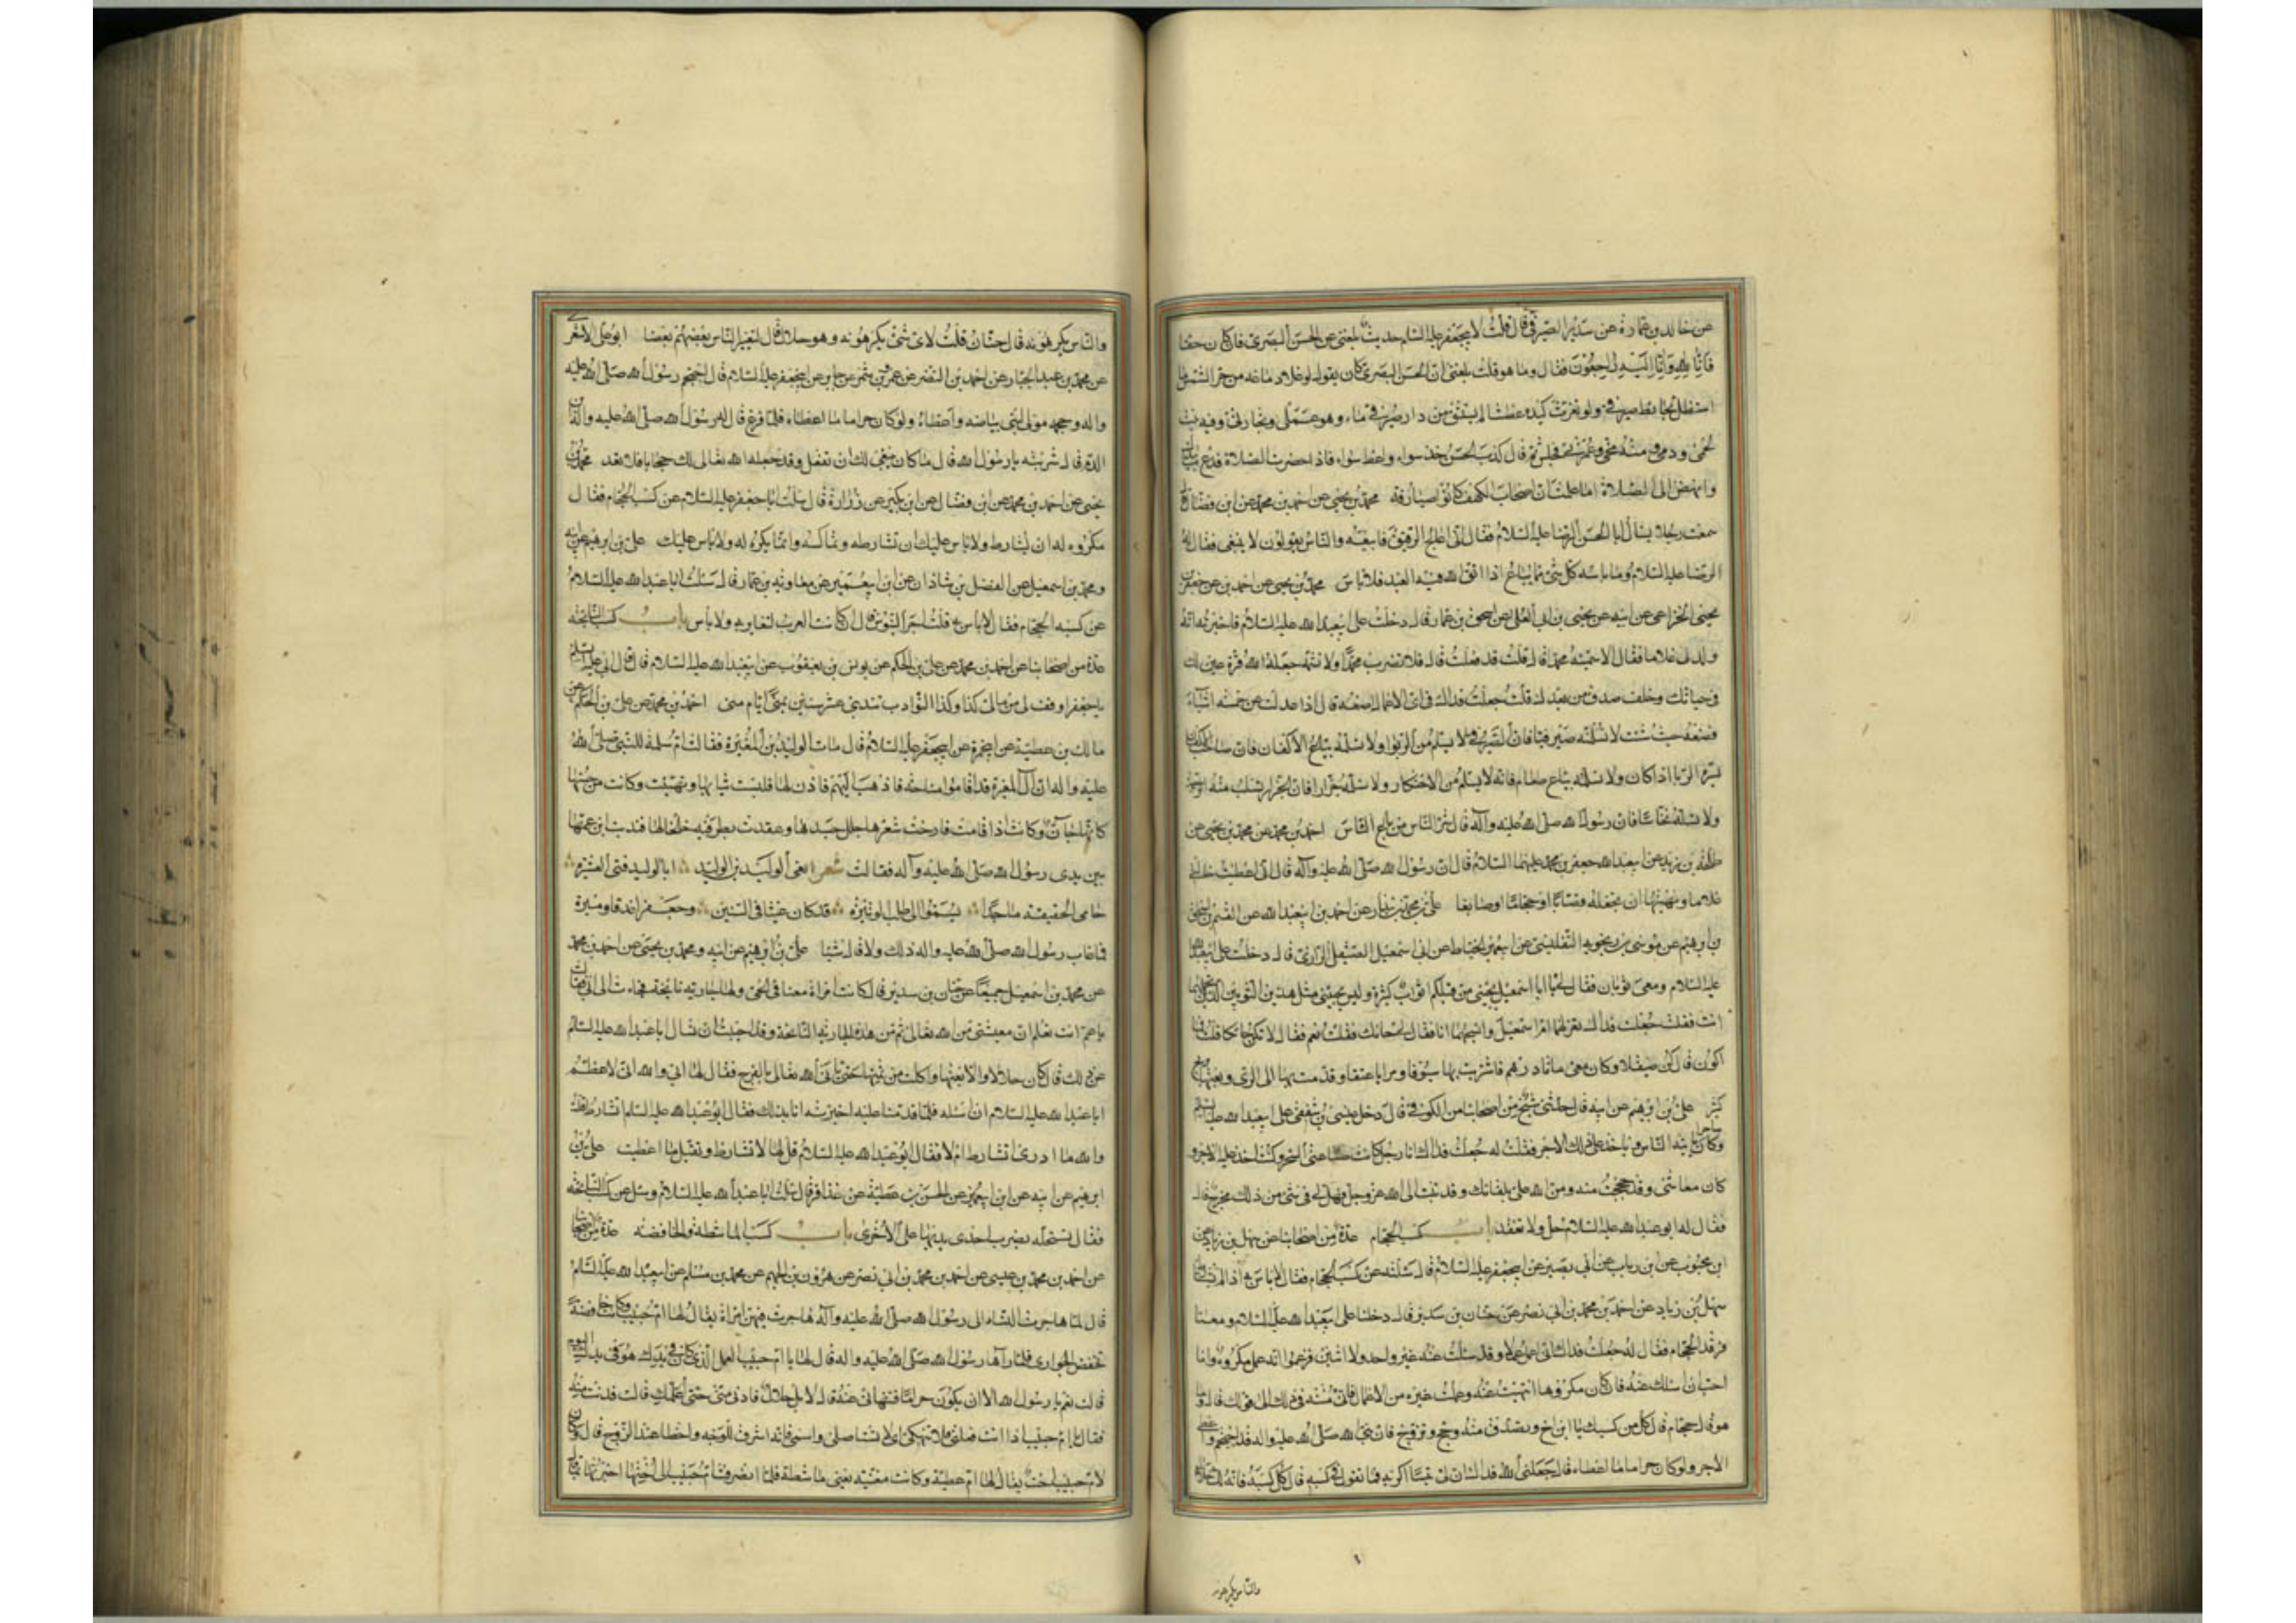 عن خالد بن عمارة عن سدير الصيرفي قال قلت لابي جعفر عليه السلام حديث بلغني عن الحسن البصري فان كان حقا
فانا لله وانا اليه راجعون فقال وما هو قلت بلغني ان الحسن البصري كان يقول لو غلا دماغه من حر الشمس ما
استظل بحايط صيرفي ولو تفرثت كبده عطشا لم يستسق من دار صيرفي ماء وهو عملي وتجارتي وفيه نبت
لحمي ودمي ومنه حجي وعمرتي فجلس ثم قال كذب الحسن خذ سواء واعط سواء فاذا حضرت الصلاة فدع ما بيدك
وانهض الى الصلاة اما علمت ان اصحاب الكهف كانوا صيارفة محمد بن يحيى عن احمد بن محمد عن ابن فضال قال
سمعت رجلا يسأل ابا الحسن الرضا عليه السلام فقال اني اعالج الرقيق فابيعه والناس يقولون لا ينبغي فقال له
الرضا عليه السلام وما باسه كل شئ مما يباع اذا اتقى الله فيه العبد فلا باس محمد بن يحيى عن احمد بن عن جعفر بن
يحيى الخزاعي عن ابيه عن يحيى بن ابي العلا عن اسحق بن عمار قال دخلت على ابي عبد الله عليه السلام فاخبرته انه
ولد لي غلاما فقال الا سميته محمدا قال قلت قد فعلت قال فلا تضرب محمدا ولا تشتمه جعله الله قرة عين لك
في حياتك وخلف صدق من بعدك قلت جعلت فداك في اي الاعمال اضعه قال اذا عدلته عن خمسة اشياء
فضعه حيث شئت لا تسلمه صيرفيا فان الصيرفي لا يسلم من الربوا ولا تسلمه بياع الاكفان فان صاحب الاكفان
يسره الوبا اذا كان ولا تسلمه بياع طعام فانه لا يسلم من الاحتكار ولا تسلمه جزارا فان الجزار تسلب منه الرحمة
ولا تسلمه نخاسا فان رسول الله صلى الله عليه وآله قال شر الناس من باع الناس احمد بن محمد عن محمد بن يحيى عن
طلحة بن زيد عن ابي عبد الله جعفر بن محمد عليهما السلام قال ان رسول الله صلى الله عليه وآله قال اني اعطيت خالتي
غلاما ونهيتها ان تجعله قصابا او حجاما او صايغا علي بن محمد بن بندار عن احمد بن ابي عبد الله عن القسم بن اسحق
بن ابرهيم عن موسى بن زنجويه التفليسي عن ابي عمر الخياط عن ابي اسمعيل الصيقل الرازي قال دخلت على ابي عبد الله
عليه السلام ومعي ثوبان فقال لي يا ابا اسمعيل يجيئني من قبلكم اثواب كثيرة وليس يجيئني مثل هذين الثوبين الذين تحملهما
انت فقلت جعلت فداك تغزلهما ام اسمعيل وانسجهما انا فقال لي حائك فقلت نعم فقال لا تكن حائكا قلت فما
اكون قال كن صيقلا وكان معي مائتا درهم فاشتريت بها سيوفا ومرايا عتقا وقدمت بها الى الري وبعتها بربح
كثير علي بن ابرهيم عن ابيه قال حدثني شيخ من اصحابنا من الكوفة قال دخل عيسى بن شفقي على ابي عبد الله عليه السلام
وكان ساحرا ياتيه الناس وياخذ على ذلك الاجر فقلت له جعلت فداك انا رجل كانت صناعتي السحر وكنت اخذ عليه الاجر و
كان معاشي وقد حججت منه ومن الله علي بلقائك وقد تبت الى الله عز وجل فهل لي في شئ من ذلك مخرج قال
فقال له ابو عبد الله عليه السلام حل ولا تعقد باب كسب الحجام عدة من اصحابنا عن سهل بن زياد عن
ابن محبوب عن ابن رياب عن ابي بصير عن ابي جعفر عليه السلام قال سئلته عن كسب الحجام فقال لا باس به اذا لم يشارط
سهل بن زياد عن احمد بن محمد بن ابي نصر عن حنان بن سدير قال دخلنا على ابي عبد الله عليه السلام ومعنا
فرقد الحجام فقال له جعلت فداك اني اعمل عملا وقد سئلت عنه غير واحد ولا اثنين فزعموا انه عمل مكروه وانا
احب ان اسئلك عنه فان كان مكروها انتهيت عنه وعملت غيره من الاعمال فاني منته في ذلك الى قولك قال وما
هو قال حجام قال كل من كسبك يا ابن اخ وتصدق منه وحج وتزوج فان نبي الله صلى الله عليه واله قد احتجم واعطى
الاجر ولو كان حراما ما اعطاه قال جعلني الله فداك ان لي تيسا اكريه فما تقول في كسبه قال كل كسبه فانه لك حلال
والناس يكرهونه
والناس يكرهونه قال حنان قلت لاي شئ يكرهونه وهو حلال قال لتعيير الناس بعضهم بعضا ابو علي الاشعري
عن محمد بن عبد الجبار عن احمد بن النضر عن عمرو بن شمر عن جابر عن ابي جعفر عليه السلام قال احتجم رسول الله صلى الله عليه
واله وحجمه مولى لبني بياضه واعطاه ولو كان حراما ما اعطاه فلما فرغ قال له رسول الله صلى الله عليه واله اين
الدم قال شربته يا رسول الله قال ما كان ينبغي لك ان تفعل وقد جعله الله تعالى لك حجابا فلا تعد محمد بن
يحيى عن احمد بن محمد عن ابن فضال عن ابن بكير عن زرارة قال سئلت ابا جعفر عليه السلام عن كسب الحجام فقال
مكروه له ان يشارط ولا باس عليك ان تشارطه وتماكسه وانما يكره له ولا باس عليك علي بن ابرهيم عن ابيه
ومحمد بن اسمعيل عن الفضل بن شاذان عن ابن ابي عمير عن معاوية بن عمار قال سئلت ابا عبد الله عليه السلام
عن كسب الحجام فقال لا باس به قلت اجر التيوس قال ان كانت العرب لتعاير به ولا باس باب كسب النائحة
عدة من اصحابنا عن احمد بن محمد عن علي بن الحكم عن يونس بن يعقوب عن ابي عبد الله عليه السلام قال قال لي ابي عليه السلام
يا جعفر اوقف لي من مالي كذا وكذا النوادب تندبني عشر سنين بمنى ايام منى احمد بن محمد عن علي بن الحكم عن
مالك بن عطية عن ابي حمزة عن ابي جعفر عليه السلام قال مات الوليد بن المغيرة فقالت ام سلمة للنبي صلى الله
عليه واله ان آل المغيرة قد اقاموا مناحة فاذهب اليهم فاذن لها فلبست ثيابها وتهيئت وكانت من حسنها
كانها جان وكانت اذا قامت فارخت شعرها جلل جسدها وعقدت بطرفيه خلخالها فندبت ابن عمها
بين يدي رسول الله صلى الله عليه وآله فقالت شعر انعى الوليد بن الوليد ابا الوليد فتى العشيرة
حامي الحقيقة ماجدا يسمو الى طلب الوتيرة قد كان غيثا في السنين وجعفرا غدقا وميرة
فما عاب رسول الله صلى الله عليه واله ذلك ولا قال شيئا علي بن ابرهيم عن ابيه ومحمد بن يحيى عن احمد بن محمد
عن محمد بن اسمعيل جميعا عن حنان بن سدير قال كانت امراة معنا في الحي ولها جارية نائحة فجاءت الى ابي فقالت
يا عم انت تعلم ان معيشتي من الله تعالى ثم من هذه الجارية النائحة وقد احببت ان تسأل ابا عبد الله عليه السلام
عن ذلك فان كان حلالا والا بعتها واكلت من ثمنها حتى ياتي الله تعالى بالفرج فقال لها ابي والله اني لاعظم
ابا عبد الله عليه السلام ان اسئله فلما قدمنا عليه اخبرته انا بذلك فقال ابو عبد الله عليه السلام اتشارط قلت
والله ما ادري اتشارط ام لا فقال ابو عبد الله عليه السلام قل لها لا تشارط وتقبل ما اعطيت علي بن
ابرهيم عن ابيه عن ابن ابي عمير عن الحسن بن عطية عن عذافر قال سمعت ابا عبد الله عليه السلام وسئل عن كسب النائحة
فقال تستحله بضرب احدى يديها على الاخرى باب كسب الماشطة والخافضة عدة من اصحابنا
عن احمد بن محمد بن عيسى عن احمد بن محمد بن ابي نصر عن هرون بن الجهم عن محمد بن مسلم عن ابي عبد الله عليه السلام
قال لما هاجرت النساء الى رسول الله صلى الله عليه وآله هاجرت فيهن امراة يقال لها ام حبيب وكانت خافضة
تخفض الجواري فلما رآها رسول الله صلى الله عليه واله قال لها يا ام حبيب العمل الذي كان في يدك هو في يدك اليوم
قالت نعم يا رسول الله الا ان يكون حراما فتنهاني عنه قال لا بل حلال فادني مني حتى اعلمك قالت فدنت منه
فقال يا ام حبيب اذا انت فعلت فلا تنهكي اي لا تستاصلي واشمي فانه اشرق للوجه واحظا عند الزوج قال وكان
لام حبيب اخت يقال لها ام عطية وكانت مقنية يعني ماشطة فلما انصرفت ام حبيب الى اختها اخبرتها بما قال